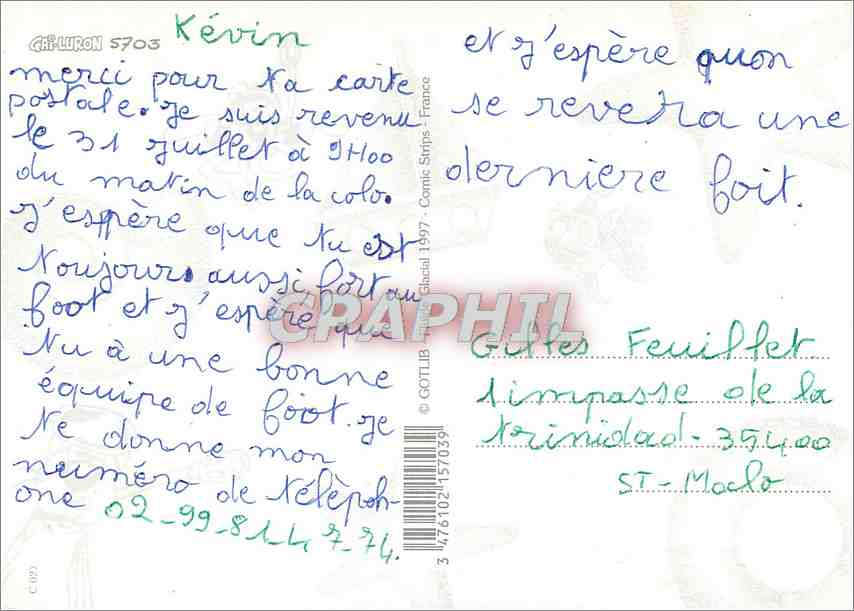 GAI-LURON 5703 Kévin
merci pour ta carte
postale. Je suis revenu
le 31 juillet à 9H00
du matin de la colo.
J'espère que tu est
toujours aussi fort au
foot et j'espère que
tu à une bonne
équipe de foot. Je
te donne mon
numéro de télèpoh-
one 02-99-81-47-74.
et j'espère quon
se revera une
derniere foit.
Gilles Feuillet
1 impasse de la
trinidad - 35400
ST-Malo
© GOTLIB - Fluide Glacial 1997 - Comic Strips - France
3 476102 157039
C 093
GRAPHIL